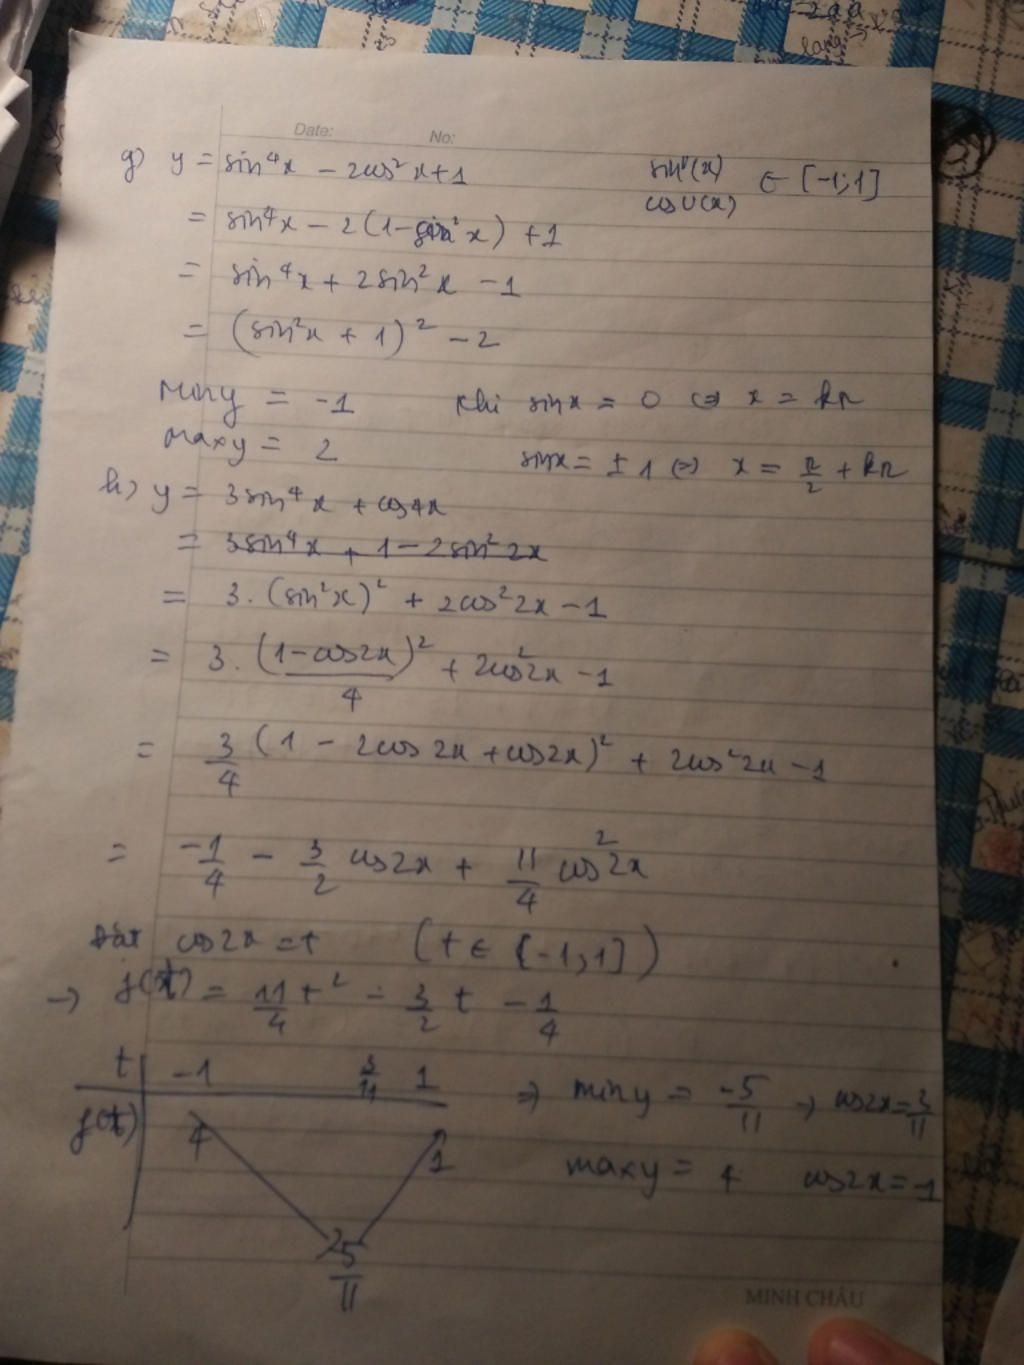 Date: No:
g) y = sin⁴x - 2cos²x + 1
sin u(x)
cos u(x) ∈ [-1;1]
= sin⁴x - 2(1-sin²x) + 1
= sin⁴x + 2sin²x - 1
= (sin²x + 1)² - 2
min y = -1 khi sinx = 0 ⇔ x = kπ
max y = 2 sinx = ±1 ⇔ x = π/2 + kπ
h) y = 3sin⁴x + cos4x
= 3sin⁴x + 1 - 2sin²2x
= 3.(sin²x)² + 2cos²2x - 1
= 3.(1-cos2x)²/4 + 2cos²2x - 1
= 3/4 (1 - 2cos2x + cos2x)² + 2cos²2x - 1
= -1/4 - 3/2 cos2x + 11/4 cos²2x
Đặt cos2x = t (t ∈ [-1;1])
→ f(t) = 11/4 t² - 3/2 t - 1/4
t -1 3/11 1
f(t) 4 1
-5/11
⇒ min y = -5/11 → cos2x = 3/11
max y = 4 cos2x = -1
MINH CHÂU